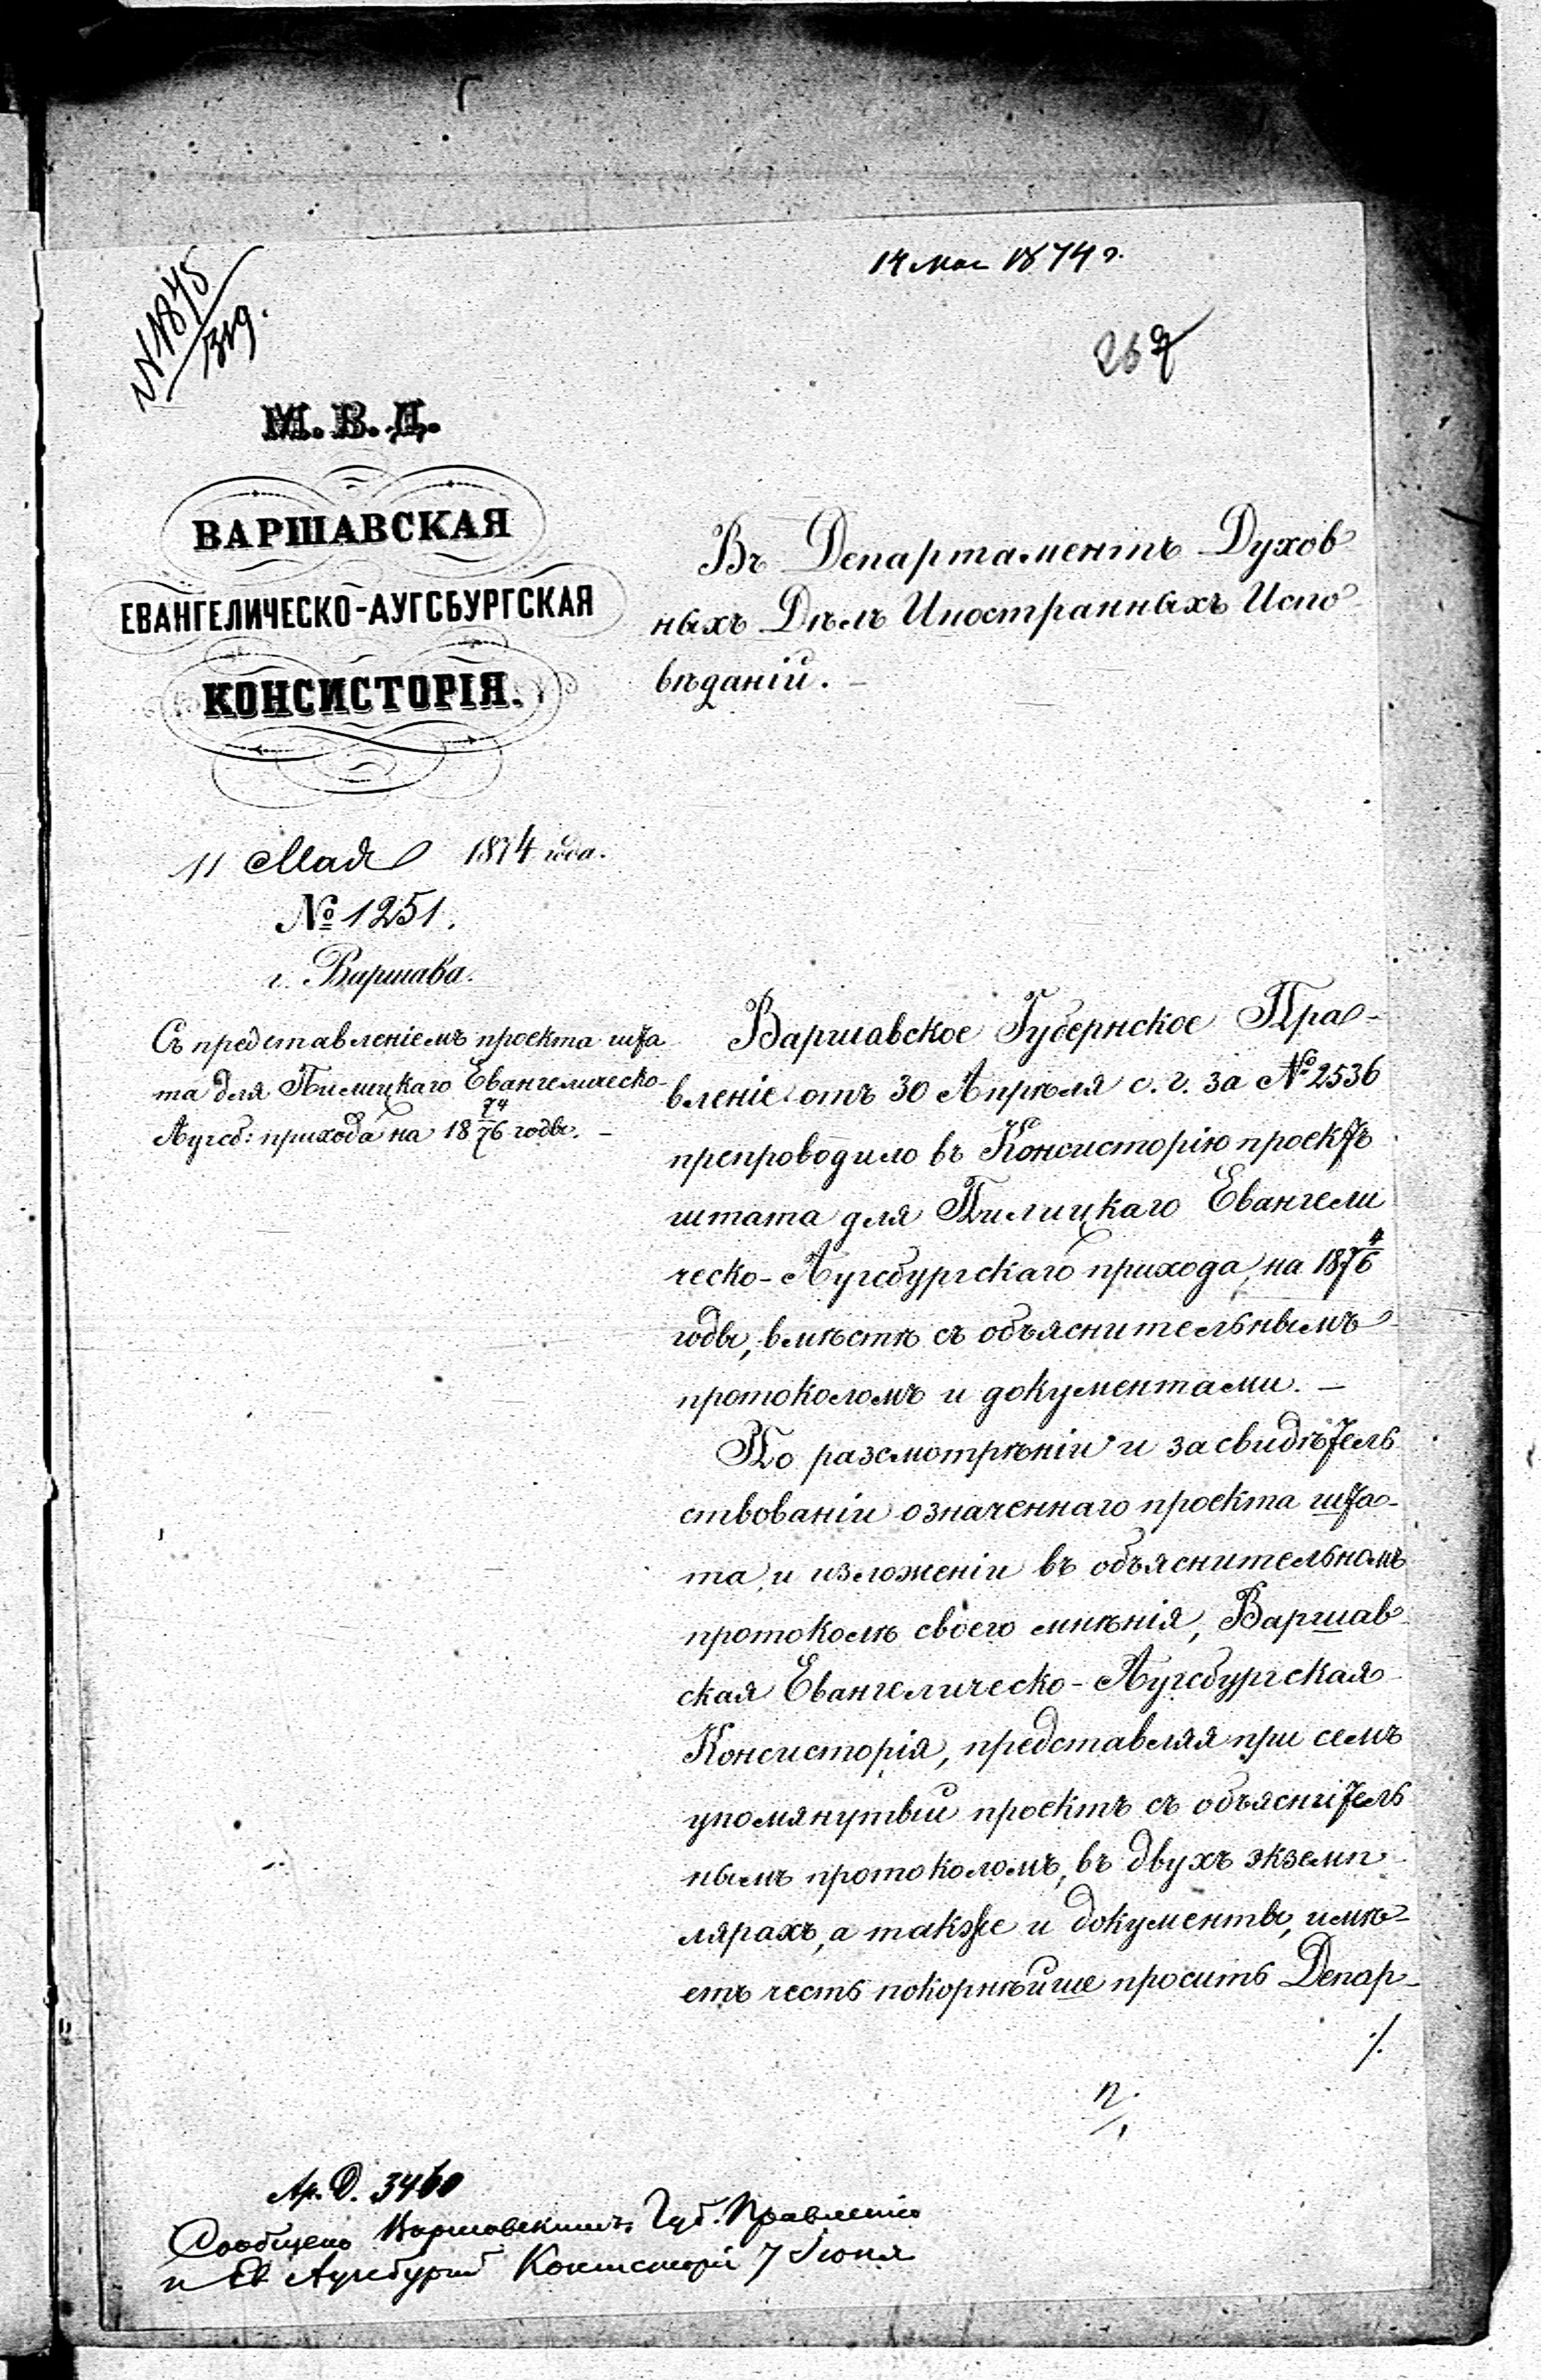 14 мая 1874 г.
№ 1875/319.
267
М. В. Д.
ВАРШАВСКАЯ
ЕВАНГЕЛИЧЕСКО-АУГСБУРГСКАЯ
КОНСИСТОРІЯ.
11 Мая 1874 года.
№ 1251.
г. Варшава.
Съ представленіемъ проекта шта
та для Пилицкаго Евангелическо-
Аугсб: прихода на 18 74/76 годы. –
Въ Департаментъ Духов
ныхъ Дѣлъ Иностранныхъ Испо
вѣданій. –
Варшавское Губернское Пра-
вленіе отъ 30 Апрѣля с. г. за № 2536
препроводило въ Консисторію проектъ
штата для Пилицкаго Евангели
ческо-Аугсбургскаго прихода, на 187 4/6
годы, вмѣстѣ съ объяснительнымъ
протоколомъ и документами. –
По разсмотрѣніи и засвидѣтель
ствованіи означеннаго проекта шта-
та, и изложеніи въ объяснительномъ
протоколѣ своего мнѣнія, Варшав
ская Евангелическо-Аугсбургская
Консисторія, представляя при семъ
упомянутый проектъ съ объяснитель
нымъ протоколомъ, въ двухъ экземп
лярахъ, а также и документы, имѣ-
етъ честь покорнѣйше просить Депар-
./.
Ар. Д. 3460
Сообщено Варшавскимъ Губ. Правленію
и Ев Аугсбургй Консисторіи 7 Іюня